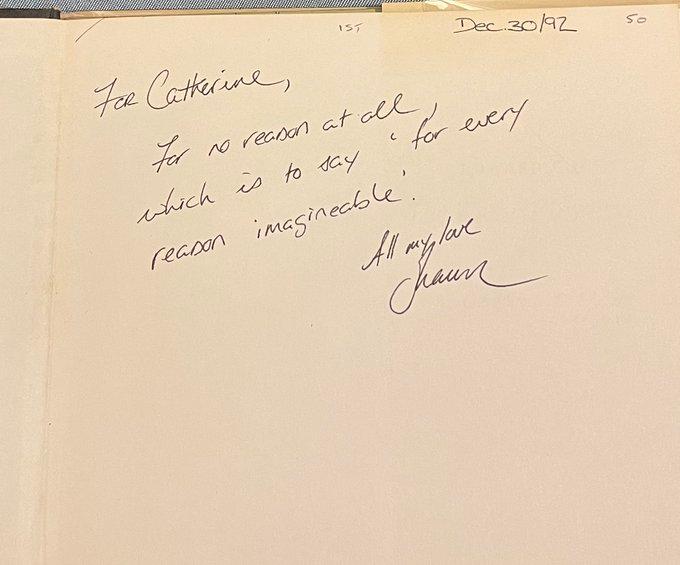 1ST
Dec. 30/92
50
For Catherine,
For no reason at all,
which is to say 'for every
reason imagineable'.
All my love
Shawn